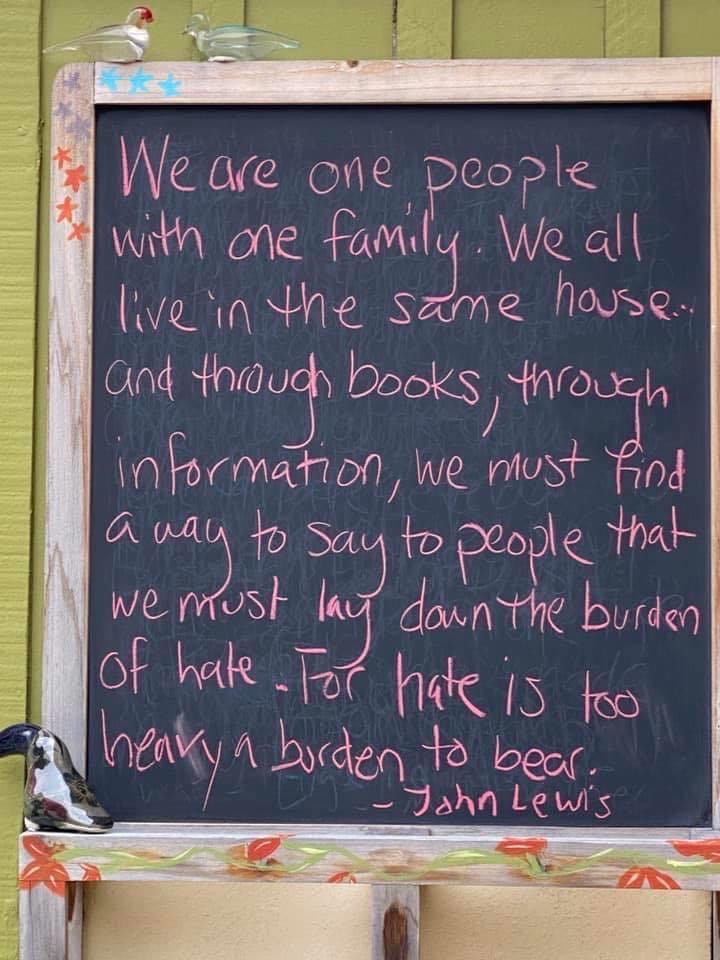 We are one people
with one family. We all
live in the same house...
and through books, through
information, we must find
a way to say to people that
we must lay down the burden
of hate. For hate is too
heavy a burden to bear.
- John Lewis